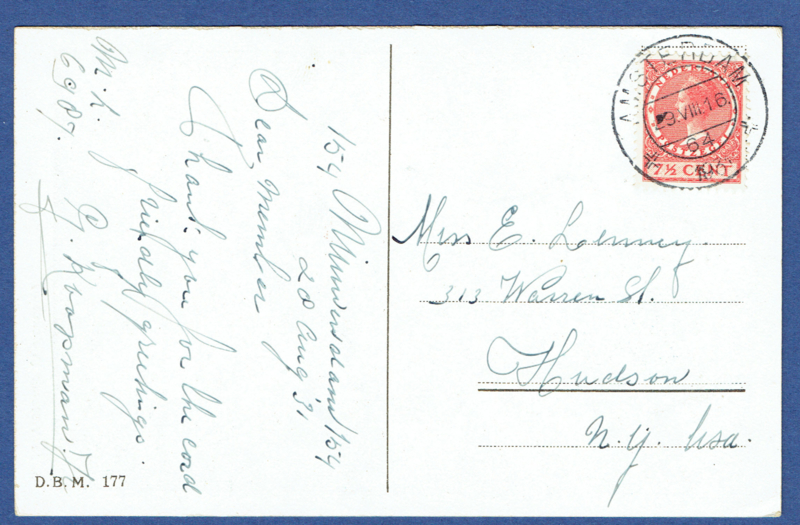 154 Minversdam 154
28 Aug 31
Dear Member
Thank you for the card
friendly greetings.
G. Koopman
M. L.
6987.
D.B.M. 177
AMSTERDAM
3.VIII.16
64
NEDERLAND
7½ CENT
Miss E. Lenney.
313 Warren St.
Hudson
N.Y. Usa.